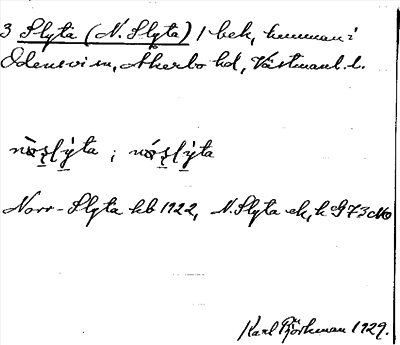 3 Slyta (N. Slyta) 1 bek, kumman i
Odensvi sn, Åkerbo hd, Västmanl. l.
nòṣlỳta ; nóṣlỳta
Norr-Slyta kb 1922, N. Slyta ek,
Karl Björkman 1929.